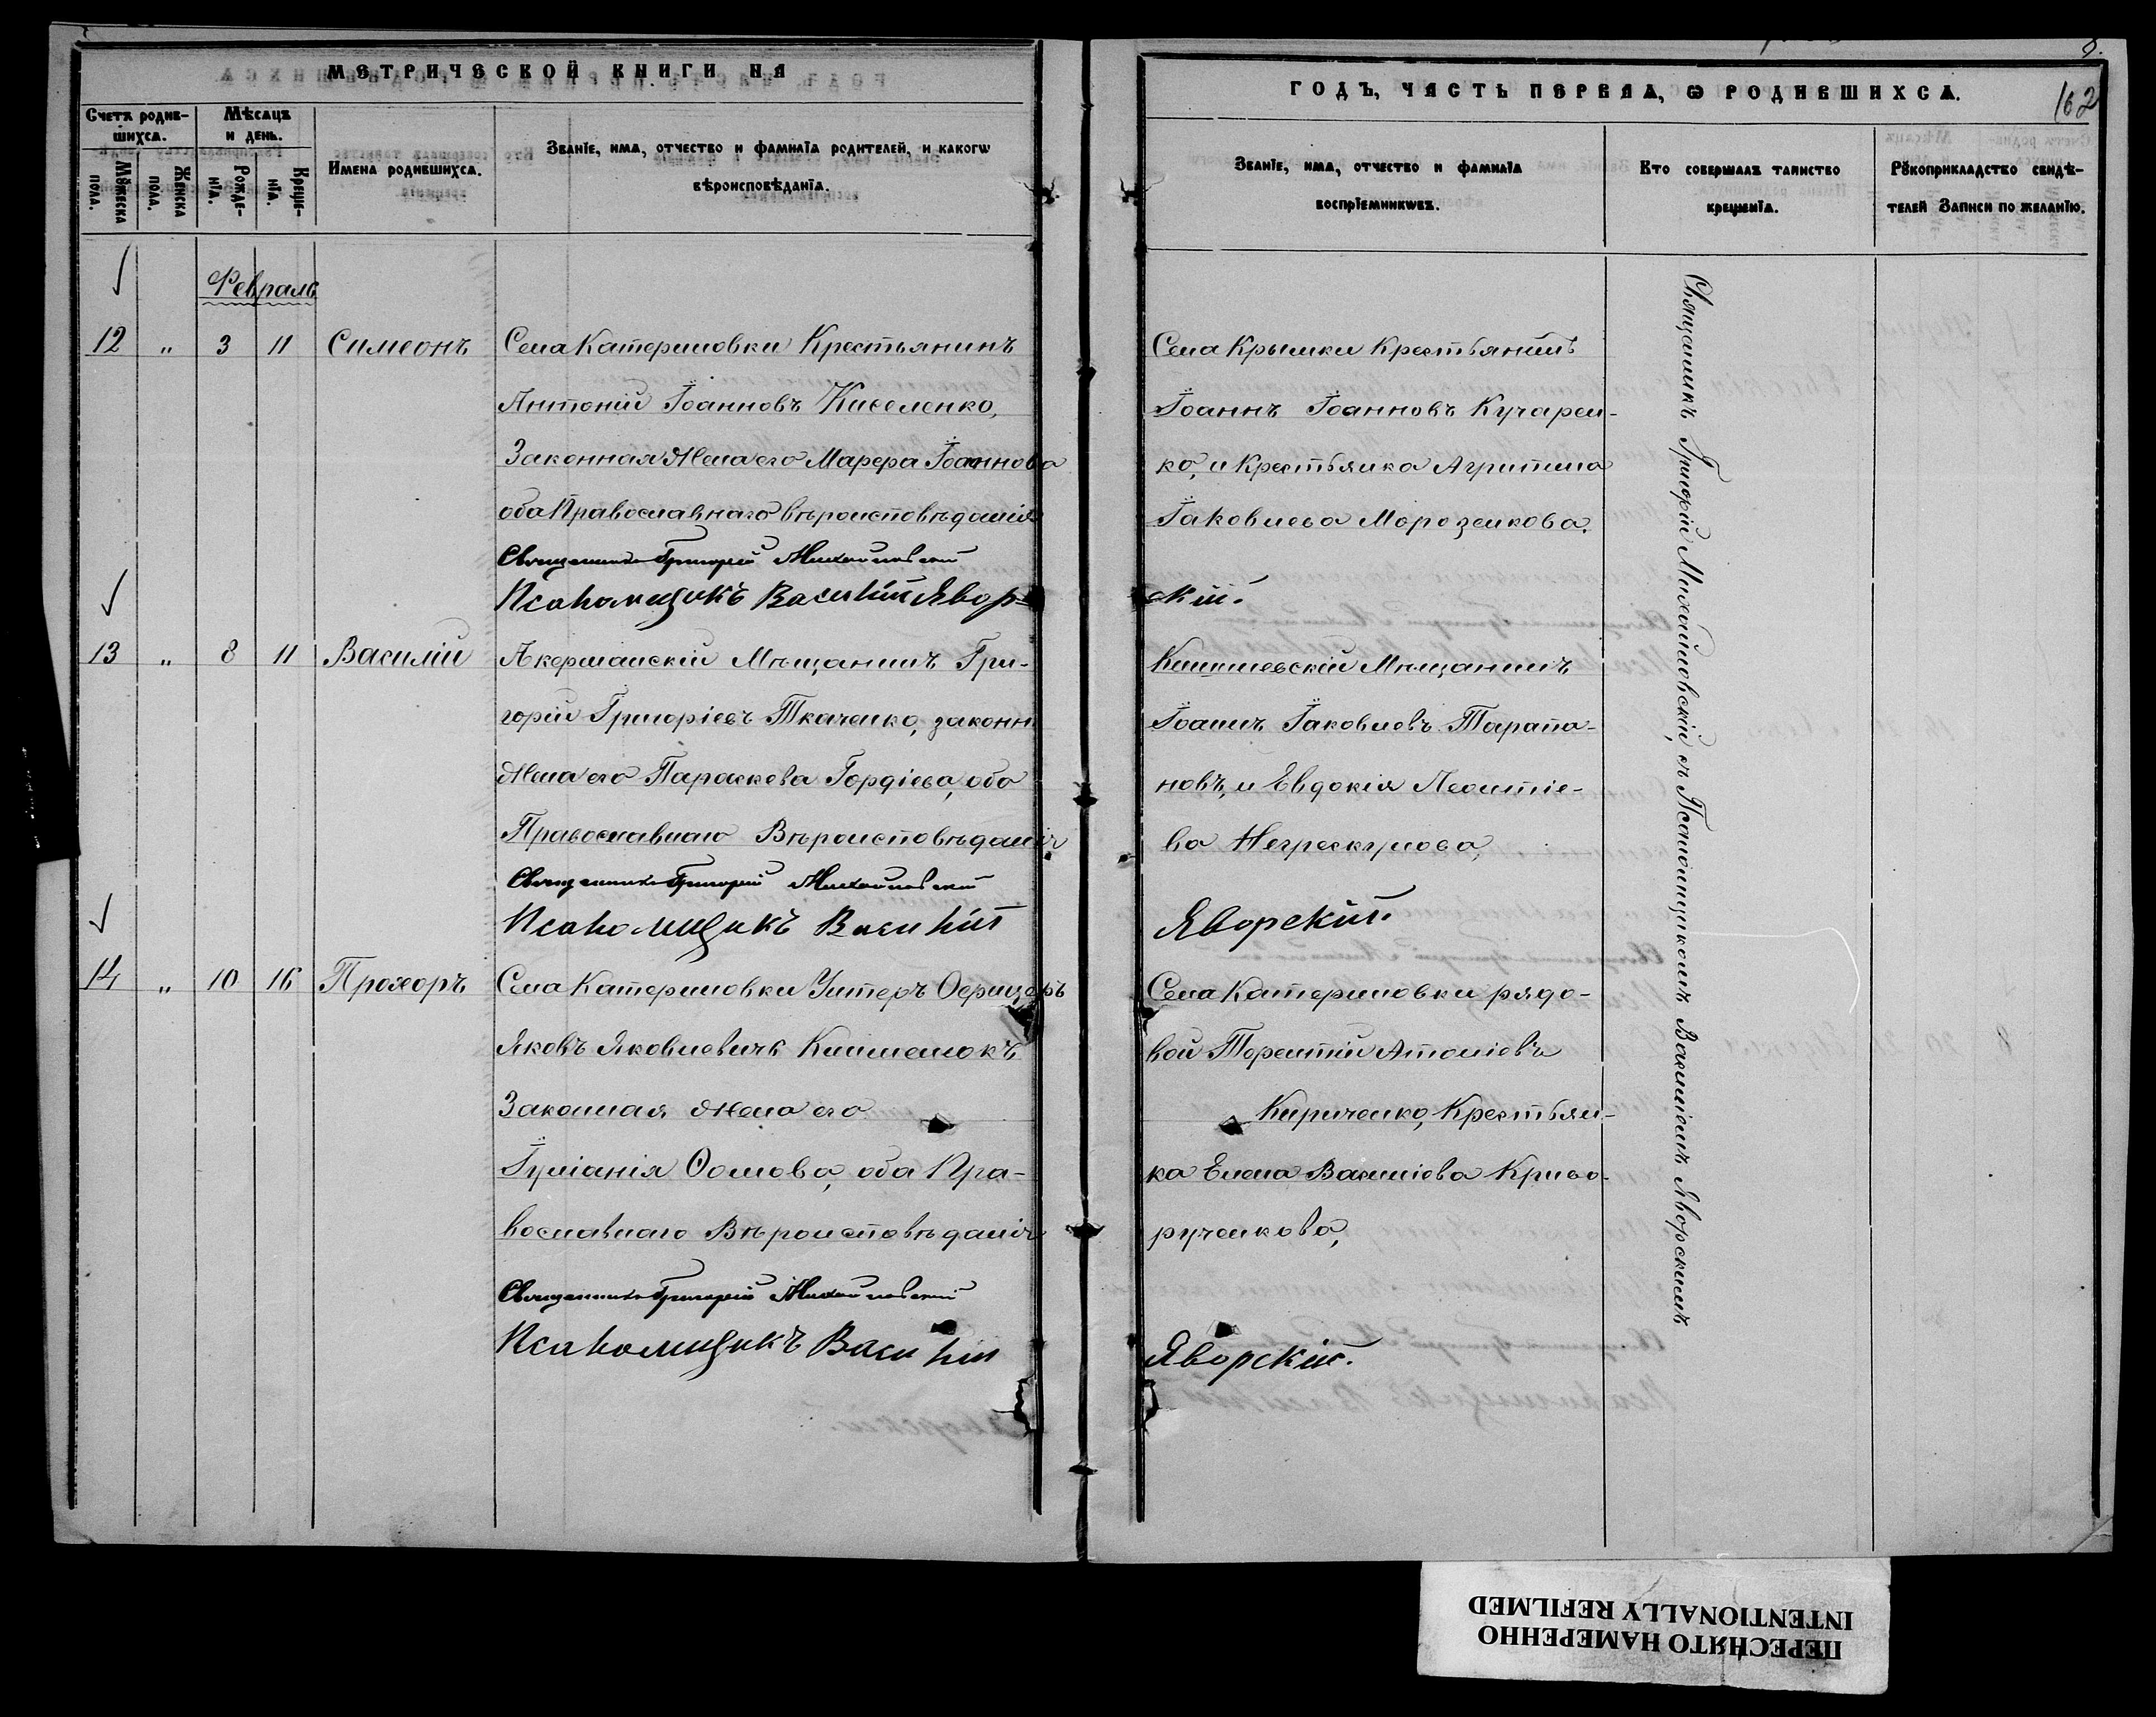 МЕТРИЧЕСКОЙ КНИГИ НА
Счетъ родив-
шихсѧ.
Мѣсяцъ
и день.
Мꙋжеска
пола.
Женска
пола.
Рожде-
нїѧ.
Креще-
нїѧ.
Имена родившихсѧ.
Званїе, имѧ, отчество и фамилїѧ родителей, и какогѡ
вѣроисповѣданїѧ.
Февраль
12 " 3 11 Симеонъ
Села Катериновки Крестьянинъ
Антоній Іоанновъ Киселенко,
Законная Жена его Марѳа Іоаннова
оба Православнаго вѣроисповѣданія
Священникъ Григорій Михайловскій
Псаломщикъ Василій Явор-
13 " 8 11 Василій
Акерманскій Мѣщанинъ Гри-
горій Григоріевъ Ткаченко, законн
Жена его Параскева Гордіева, оба
Православнаго Вѣроисповѣданія
Священникъ Григорій Михайловскій
Псаломщикъ Василій
14 " 10 16 Прохоръ
Села Катериновки Унтеръ Офицеръ
Яковъ Яковлевичъ
Законная Жена его
Іуліанія Ѳомова, оба Пра-
вославнаго Вѣроисповѣданія
Священникъ Григорій Михайловскій
Псаломщикъ Василій
ГОДЪ, ЧАСТЬ ПЕРВАѦ, Ѡ РОДИВШИХСѦ.
162
Званїе, имѧ, отчество и фамилїѧ
воспрїемникѡвъ.
Кто совершалъ таинство
крещенїѧ.
Рꙋкоприкладство свидѣ-
телей записи по желанїю.
Села Крымки Крестьянинъ
Іоаннъ Іоанновъ Кухарен-
ко, и Крестьянка Агрипина
Іаковлева Морозенкова.
скій.
Кишиневскій Мѣщанинъ
Іоаннъ Іаковлевъ Тарапа-
новъ, и Евдокія Леонтіе-
ва Негрескулова,
Яворскій.
Села Катериновки рядо-
вой Терентій Антоніевъ
Кириченко, Крестьян-
ка Елена Василіева Криво-
рученкова,
Яворскій.
Священникъ Григорій Михайловскій, съ Псаломщикомъ Василіемъ Яворскимъ
ПЕРЕСНЯТО НАМЕРЕННО
INTENTIONALLY REFILMED